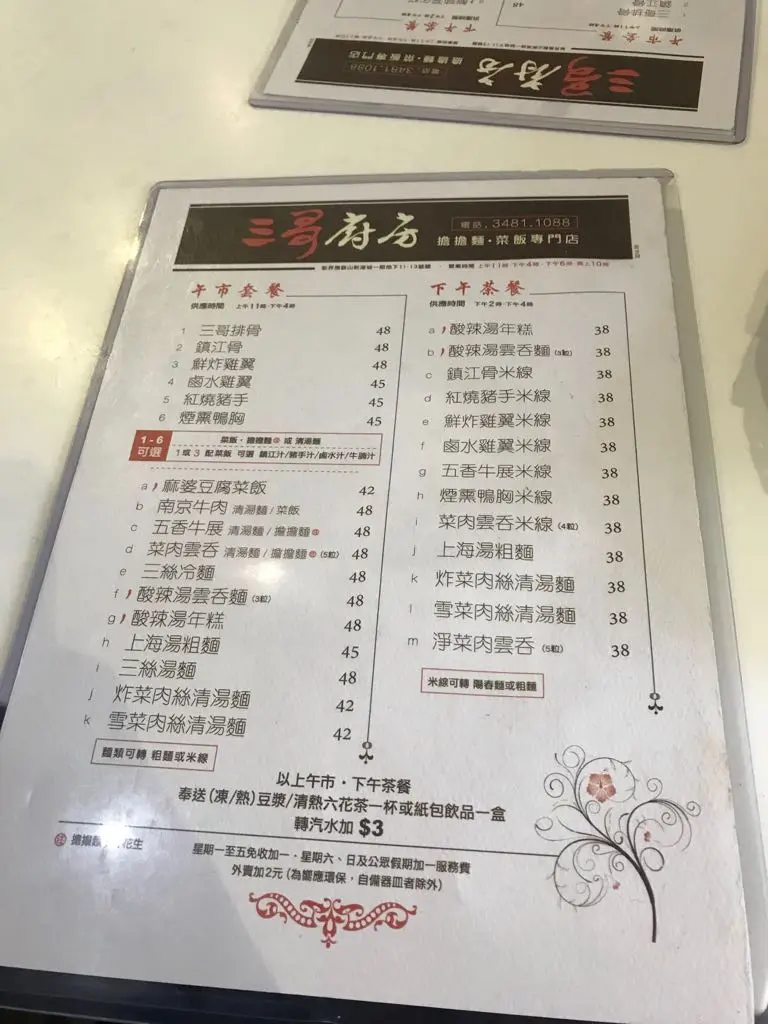 三哥廚房
電話．3481.1088
擔擔麵·菜飯專門店
午市套餐
供應時間 上午11時-下午4時
1 三哥排骨 48
2 鎮江骨 48
3 鮮炸雞翼 48
4 鹵水雞翼 45
5 紅燒豬手 45
6 煙熏鴨胸 45
1 - 6 可選
菜飯·擔擔麵 或 清湯麵
1 或 3 配菜飯 可選 鎮江汁/豬手汁/鹵水汁/牛腩汁
a 麻婆豆腐菜飯 42
b 南京牛肉 清湯麵 / 菜飯 48
c 五香牛展 清湯麵 / 擔擔麵 48
d 菜肉雲吞 清湯麵 / 擔擔麵 (5粒) 48
e 三絲冷麵 48
f 酸辣湯雲吞麵 (3粒) 48
g 酸辣湯年糕 48
h 上海湯粗麵 45
i 三絲湯麵 48
j 炸菜肉絲清湯麵 42
k 雪菜肉絲清湯麵 42
麵類可轉 粗麵或米線
下午茶餐
供應時間 下午2時-下午4時
a 酸辣湯年糕 38
b 酸辣湯雲吞麵 (3粒) 38
c 鎮江骨米線 38
d 紅燒豬手米線 38
e 鮮炸雞翼米線 38
f 鹵水雞翼米線 38
g 五香牛展米線 38
h 煙熏鴨胸米線 38
i 菜肉雲吞米線 (4粒) 38
j 上海湯粗麵 38
k 炸菜肉絲清湯麵 38
l 雪菜肉絲清湯麵 38
m 淨菜肉雲吞 (5粒) 38
米線可轉 陽春麵或粗麵
以上午市·下午茶餐
奉送 (凍/熱) 豆漿/清熱六花茶一杯或紙包飲品一盒
轉汽水加 $3
擔擔麵 花生
星期一至五免收加一·星期六、日及公眾假期加一服務費
外賣加2元 (為響應環保，自備器皿者除外)